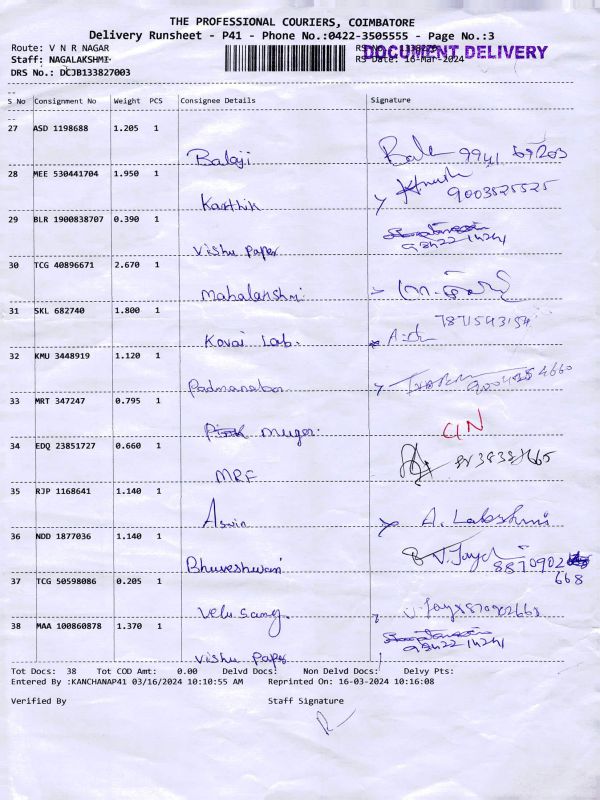 THE PROFESSIONAL COURIERS, COIMBATORE
Delivery Runsheet - P41 - Phone No.:0422-3505555 - Page No.:3
Route: V N R NAGAR
DOCUMENT DELIVERY
Staff: NAGALAKSHMI
RS Date: 16-Mar-2024
DRS No.: DCJB133827003
S No Consignment No Weight PCS Consignee Details Signature
27 ASD 1198688 1.205 1
Balaji
28 MEE 530441704 1.950 1
Karthik 9003525525
29 BLR 1900838707 0.390 1
Vishu Paper
30 TCG 40896671 2.670 1
Mahalakshmi
31 SKL 682740 1.800 1
Kovai Lab.
32 KMU 3448919 1.120 1
Padmanaban
33 MRT 347247 0.795 1
34 EDQ 23851727 0.660 1
MRF
35 RJP 1168641 1.140 1
Aswin A. Lakshmi
36 NDD 1877036 1.140 1
Bhuveshwari
668
37 TCG 50598086 0.205 1
38 MAA 100860878 1.370 1
Vishu Paper
Tot Docs: 38 Tot COD Amt: 0.00 Delvd Docs: Non Delvd Docs: Delvy Pts:
Entered By :KANCHANAP41 03/16/2024 10:10:55 AM Reprinted On: 16-03-2024 10:16:08
Verified By Staff Signature